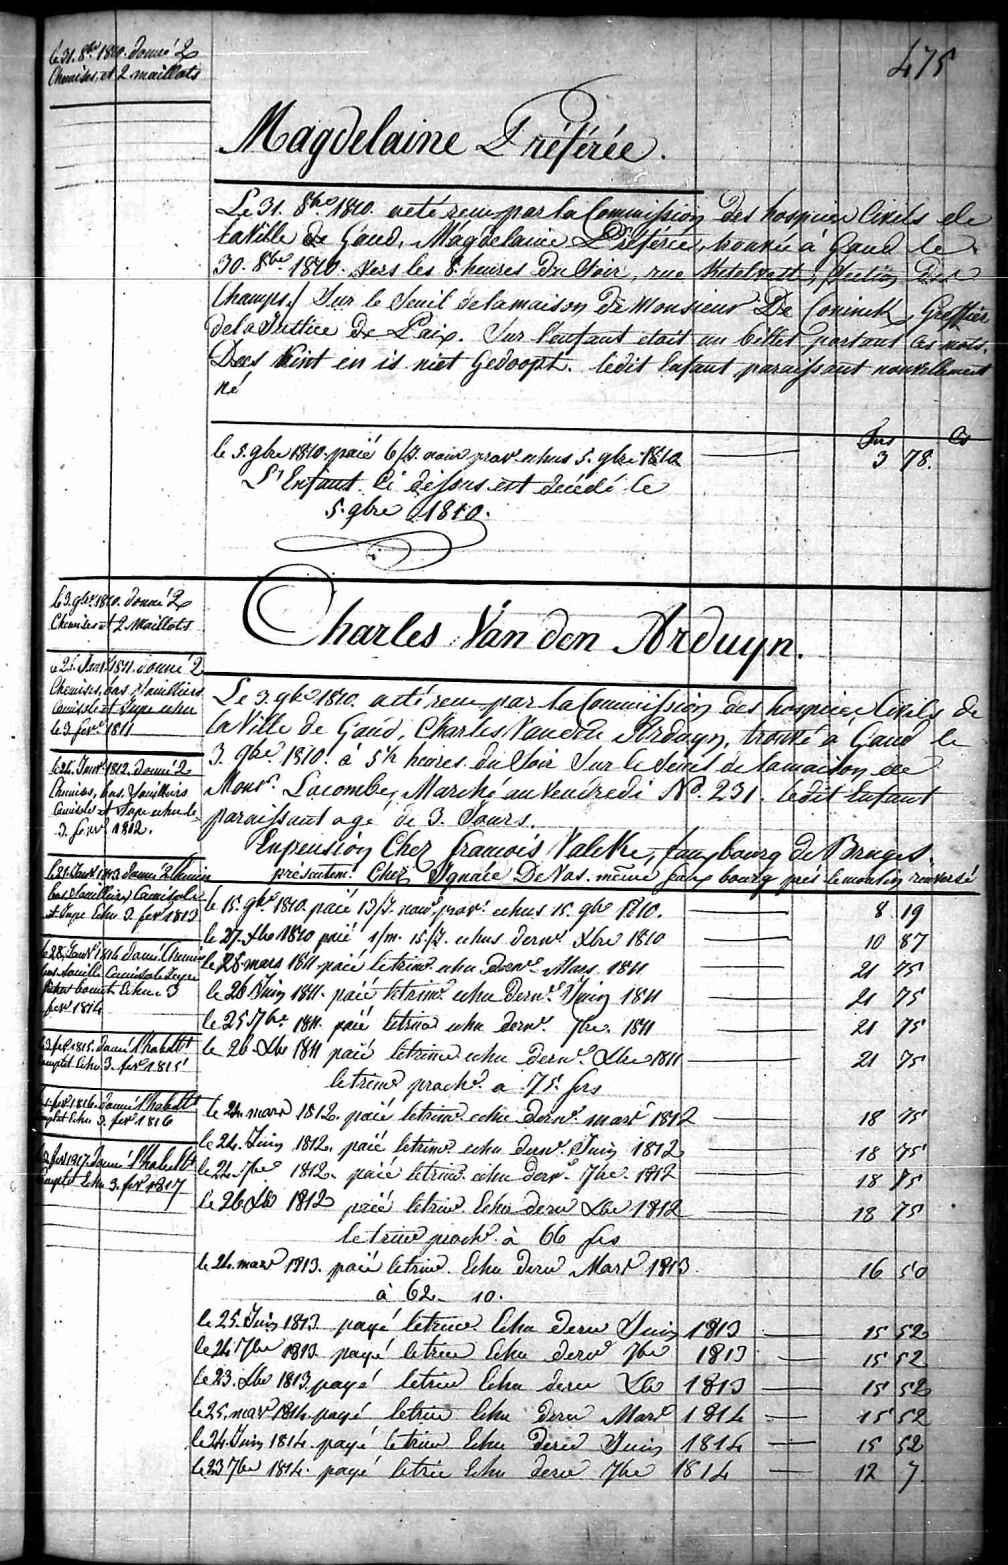 475
le 31. 8bre 1810. donné 2
Chemises, et 2 maillots
Magdelaine Préférée.
Le 31. 8bre 1810. a été reçue par la Commission des hospices Civils de
la Ville de Gand, Magdelaine Préférée, trouvée à Gand le
30. 8bre 1810. vers les 8 heures du Soir, rue Section des
Champs./ Sur le Seuil de la maison de Monsieur De Coninck, Greffier
de la Justice de Paix. Sur l'enfant était un billet portant ces mots.
Dees kint en is niet gedoopt. ledit Enfant paraissant nouvellement
né
frs Cs
le 5. 9bre 1810. paié 6/J. nour. prov. echus 5. 9bre 1810 3 78.
L'Enfant Ci dessous est décédé le
5. 9bre 1810.
le 3. 9bre 1810. donné 2
Chemises et 2 Maillots
le 25. Janv. 1811. donné 2
Chemises, bas, Souilliers
Camisole et Jupe echu
le 3. fevr. 1811
le 24. Janv. 1812. donné 2
Chemises, bas, Souilliers
Camisole et Jupe echu le
3. fevr. 1812.
le 21. Janv. 1813 donné 2 Chemises
bas Souilliers Camisole
et Jupe Echu 3. fevr 1813
le 28. Janv. 1814 donné Chemise
bas Souilliers Camisole Jupe
bonnet Echu 3
fevr 1814
le 3 fevr 1815. donné 1 habillt
complet Echu 3. fevr 1815
fevr 1816. donné 1 habillt
complet Echu 3. fevr 1816
fevr 1817 donné 1 habillt
complet Echu 3. fevr 1817
Charles Van den Arduyn.
Le 3. 9bre 1810. a été reçu par la Commission des hospices Civils de
la Ville de Gand, Charles Vanden Arduyn, trouvé à Gand le
3. 9bre 1810. à 5½ heures du Soir Sur le Seuil de la maison de
Monsr. Lacombe, Marché au Vendredi No. 231. ledit Enfant
paraissant agé de 3. Jours.
En pension Chez francois Valcke, faux bourg de Bruges.
présentemt. Chez Ignace De Vos. même faux bourg près le moulin renversé
le 15. 9bre 1810. paié 13/J. nour. prov. echus 15. 9bre 1810. 8 19
le 27. Xbre 1810 paié 1/m. 15/J. echus dernr. Xbre 1810 10 87
le 28 mars 1811. paié le trimr. echu dernr. Mars 1811 21 75
le 26 Juin 1811. paié le trimr. echu dernr. Juin 1811 21 75
le 25 7bre 1811. paié le trimr echu dernr. 7bre. 1811 21 75
le 26 Xbre 1811 paié le trimr echu dernr. Xbre 1811 21 75
le trimr proch. a 75. frs
le 24. mars 1812. paié le trimr. echu dernr. mars 1812 18 75
le 24. Juin 1812. paié le trimr. echu dernr. Juin 1812 18 75
le 24. 7bre 1812. paié le trimr. echu dernr. 7bre. 1812 18 75
le 26 Xbre 1812 paié le trimr. Echu dernr Xbre 1812 18 75
le trimr proch. à 66 frs
le 24. mars 1813. paié le trimr. Echu dernr Mars 1813. 16 50
à 62. 10.
le 25. Juin 1813. payé le trimr. Echu dernr Juin 1813 15 52
le 24 7bre 1813. payé le trimr Echu dernr 7bre 1813 15 52
le 23. Xbre 1813. payé le trimr Echu dernr Xbre 1813 15 52
le 25. mars 1814. payé le trimr Echu dernr Mars 1814 15 52
le 24. Juin 1814. payé le trimr Echu dernr Juin 1814 15 52
le 23 7bre 1814. payé le trimr Echu dernr 7bre 1814 12 7